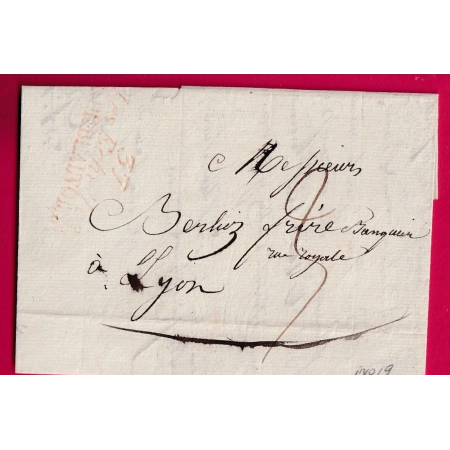 37
Messieurs
Berlioz frère Banquier
rue royale
à Lyon